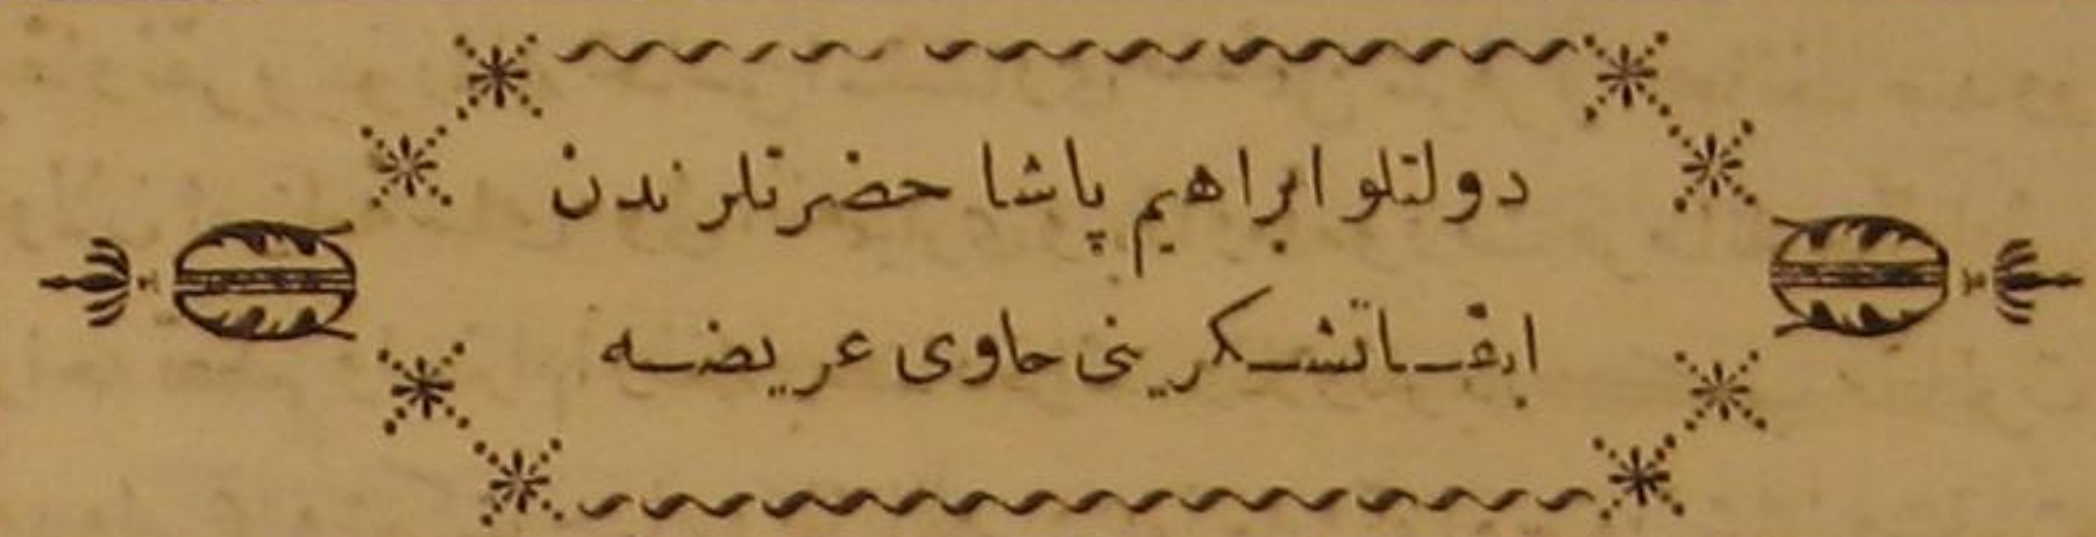 دولتلو ابراهيم پاشا حضرتلرندن
ابقا تشكرينى حاوى عريضه